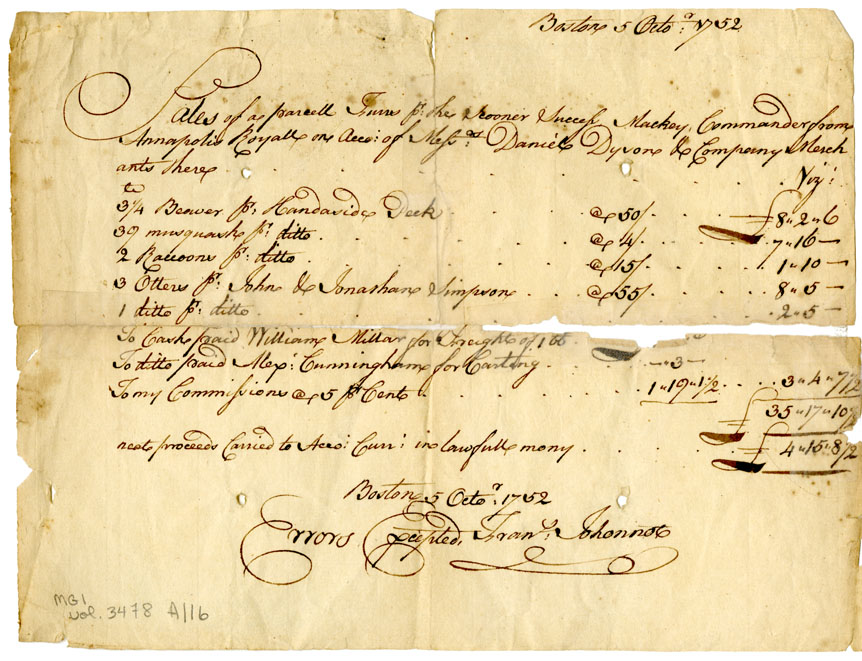 Boston 5 Octo.r 1752
Sales of a parcell Furrs pr. the Scooner Success, Mackey, Commander from
Annapolis Royall on Acco: of Mess.rs Daniel Dyson & Company Merch
ants there . . . . . . Viz:
3/4 Beaver pr. Handaside Peck . . . @ 50/ . . . £8"2"6
39 musquash pr. ditto . . . @ 4/ . . . 7"16"—
2 Raccoons pr. ditto . . . @ 15/ . . . 1"10"—
3 Otters pr. John & Jonathan Simpson . . . @ 55/ . . . 8"5—
1 ditto pr. ditto . . . 2"5—
To Cash paid William Millar for Freight of 1
To ditto paid Mex: Cunningham for Carting . . . —"3—
To my Commissions @ 5 pr. Cent . . . 1"19"1 1/2 . . . 3"4"7 1/2
£35"17"10 1/2
neat proceeds Carried to Acco: Curr: in lawfull mony . . . £4"15"8 1/2
Boston 5 Octo.r 1752
Errors Excepted, Fran.s Johonnot
MG1
vol. 3478 A/16